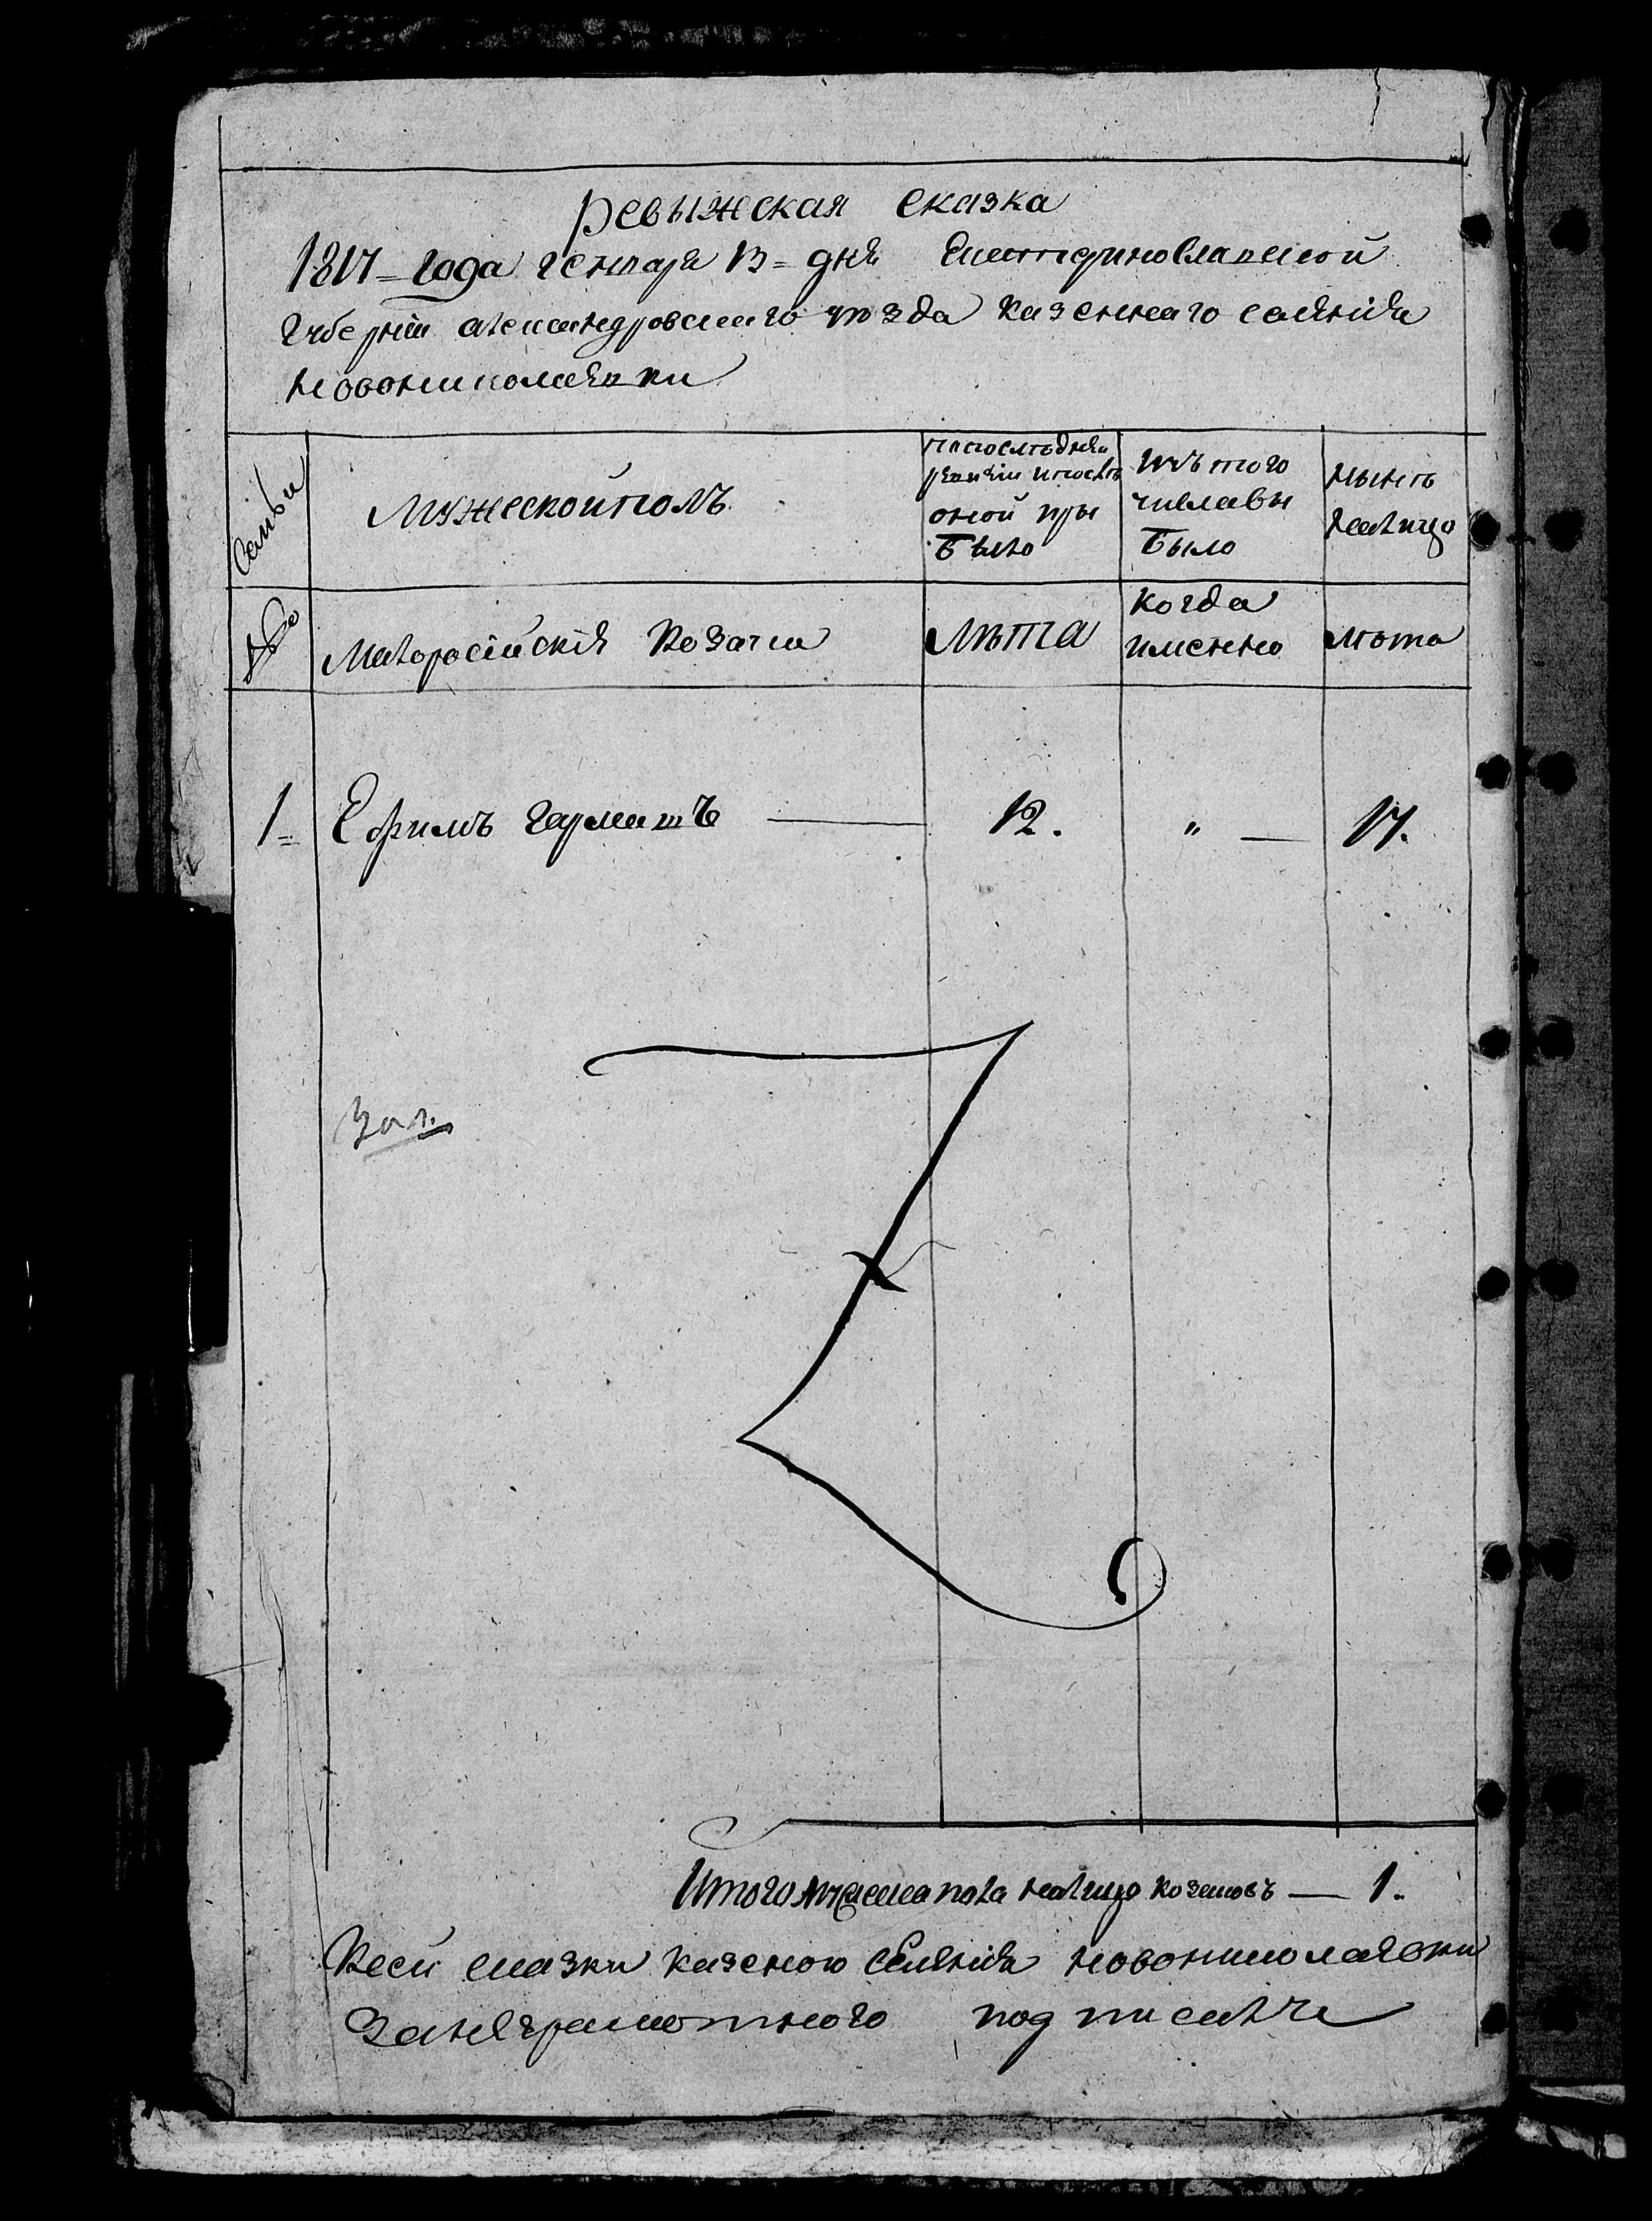 Ревыжская сказка
1817 = года генваря 13 = дня Екатеринославской
Губернии александровскаго уѣзда казеннаго селения
Новониколаевки
Семьи
Мужеской полъ
По последней ревизии и после оной при было
Изъ того числа вы было
Нынѣ налицо
№
Малоросійскія козаки
Лѣта
Когда именно
лѣта
1 = Ефимъ 12. " — 17.
Зол.
Итого мужеска пола налицо козаковъ — 1.
Ксей сказки казеного селения новониколаевки
Занеграмотного подписалъ